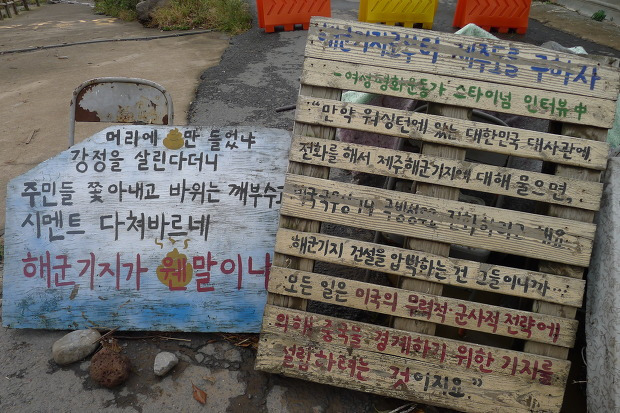 머리에 💩만 들었냐
강정을 살린다더니
주민들 쫓아내고 바위는 깨부수고
시멘트 다쳐바르네
해군기지가 웬말이냐
해군기지로부터 제주도를 구하자
-여성평화운동가 스타이넘 인터뷰 中
"만약 워싱턴에 있는 대한민국 대사관에,
전화를 해서 제주해군기지에 대해 물으면,
미국국무성이나 국방성으로 전화하라고 해요.
해군기지 건설을 압박하는 건 그들이니까...
모든 일은 미국의 무력적·군사적 전략에
의해 중국을 경계하기 위한 기지를
설립하려는 것이지요."